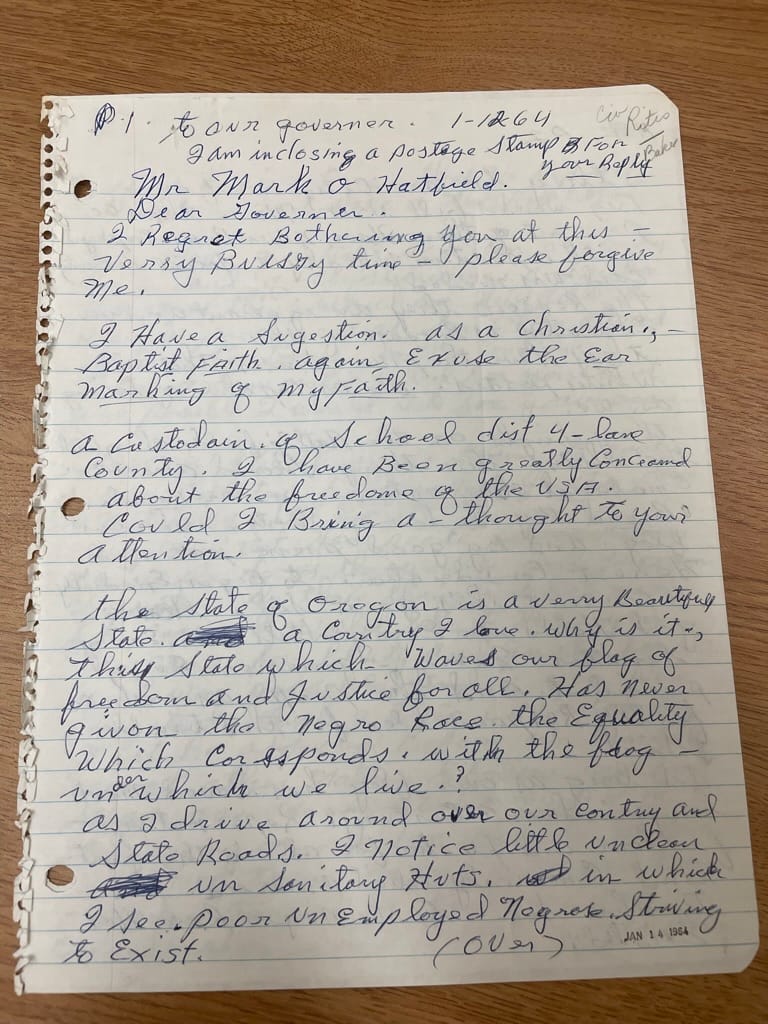 P. 1. to our governer. 1-12 64
Civ Rites
Baker
I am inclosing a postage Stamp For
your Reply
Mr Mark O Hatfield.
Dear Governer.
I Regret Bothering You at this –
Verry Buissy time – please forgive
Me.
I Have a Sugestion. as a Christian., –
Baptist Faith. again Exuse the Ear
Marking of My Faith.
a Custodain. of School dist 4 – lane
County. I have Been greatly Concearnd
about the freedome of the USA.
Could I Bring a – thought to your
attention.
the State of Oregon is a verry Beautifull
State. a Country I love. why is it –,
this State which Waves our flag of
freedom and Justice for all. Has Never
given the Negro Race the Equality
Which Corssponds. with the flag –
under which we live.?
as I drive around over our contry and
State Roads. I Notice little unclean
un Sanitary Huts. in which
I see. poor un Employed Negrose. Striving
to Exist. (Over)
JAN 14 1964